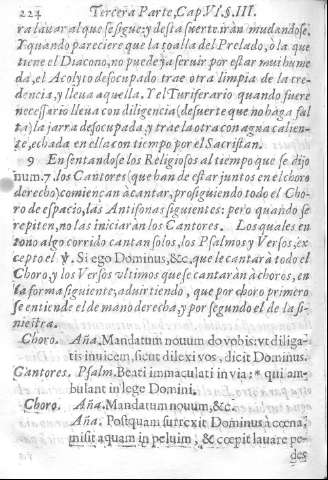 224 Tercera Parte, Cap. VI. §. III.
ra lauar al que se sigue: y desta suerte iràn mudandose.
Y quando pareciere que la toalla del Prelado, ò la que
tiene el Diacono, no puede ya seruir por estar mui hume
da, el Acolyto desocupado trae otra limpia de la cre-
dencia, y lleua aquella. Y el Turiferario quando fuere
necessario lleua con diligencia (de suerte que no haga fal
ta) la jarra desocupada, y trae la otra con agua calien-
te, echada en ella con tiempo por el Sacristan.
9 En sentandose los Religiosos al tiempo que se dijo
num. 7. los Cantores (que han de estar juntos en el choro
derecho) comiençan à cantar, prosiguiendo todo el Cho-
ro de espacio, las Antifonas siguientes: pero quando se
repiten, no las iniciaràn los Cantores. Los quales en
tono algo corrido cantan solos, los Psalmos y Versos, ex
cepto el ℣. Si ego Dominus, &c. que le cantarà todo el
Choro, y los Versos vltimos que se cantaràn à chores, en
la forma siguiente, aduirtiendo, que por choro primero
se entiende el de mano derecha, y por segundo el de la si-
niestra.
Choro. Aña. Mandatum nouum do vobis: vt diliga-
tis inuicem, sicut dilexi vos, dicit Dominus.
Cantores. Psalm. Beati immaculati in via: * qui am-
bulant in lege Domini.
Choro. Aña. Mandatum nouum, &c.
Aña. Postquam surrexit Dominus à cœna,
misit aquam in peluim, & cœpit lauare pe-
des